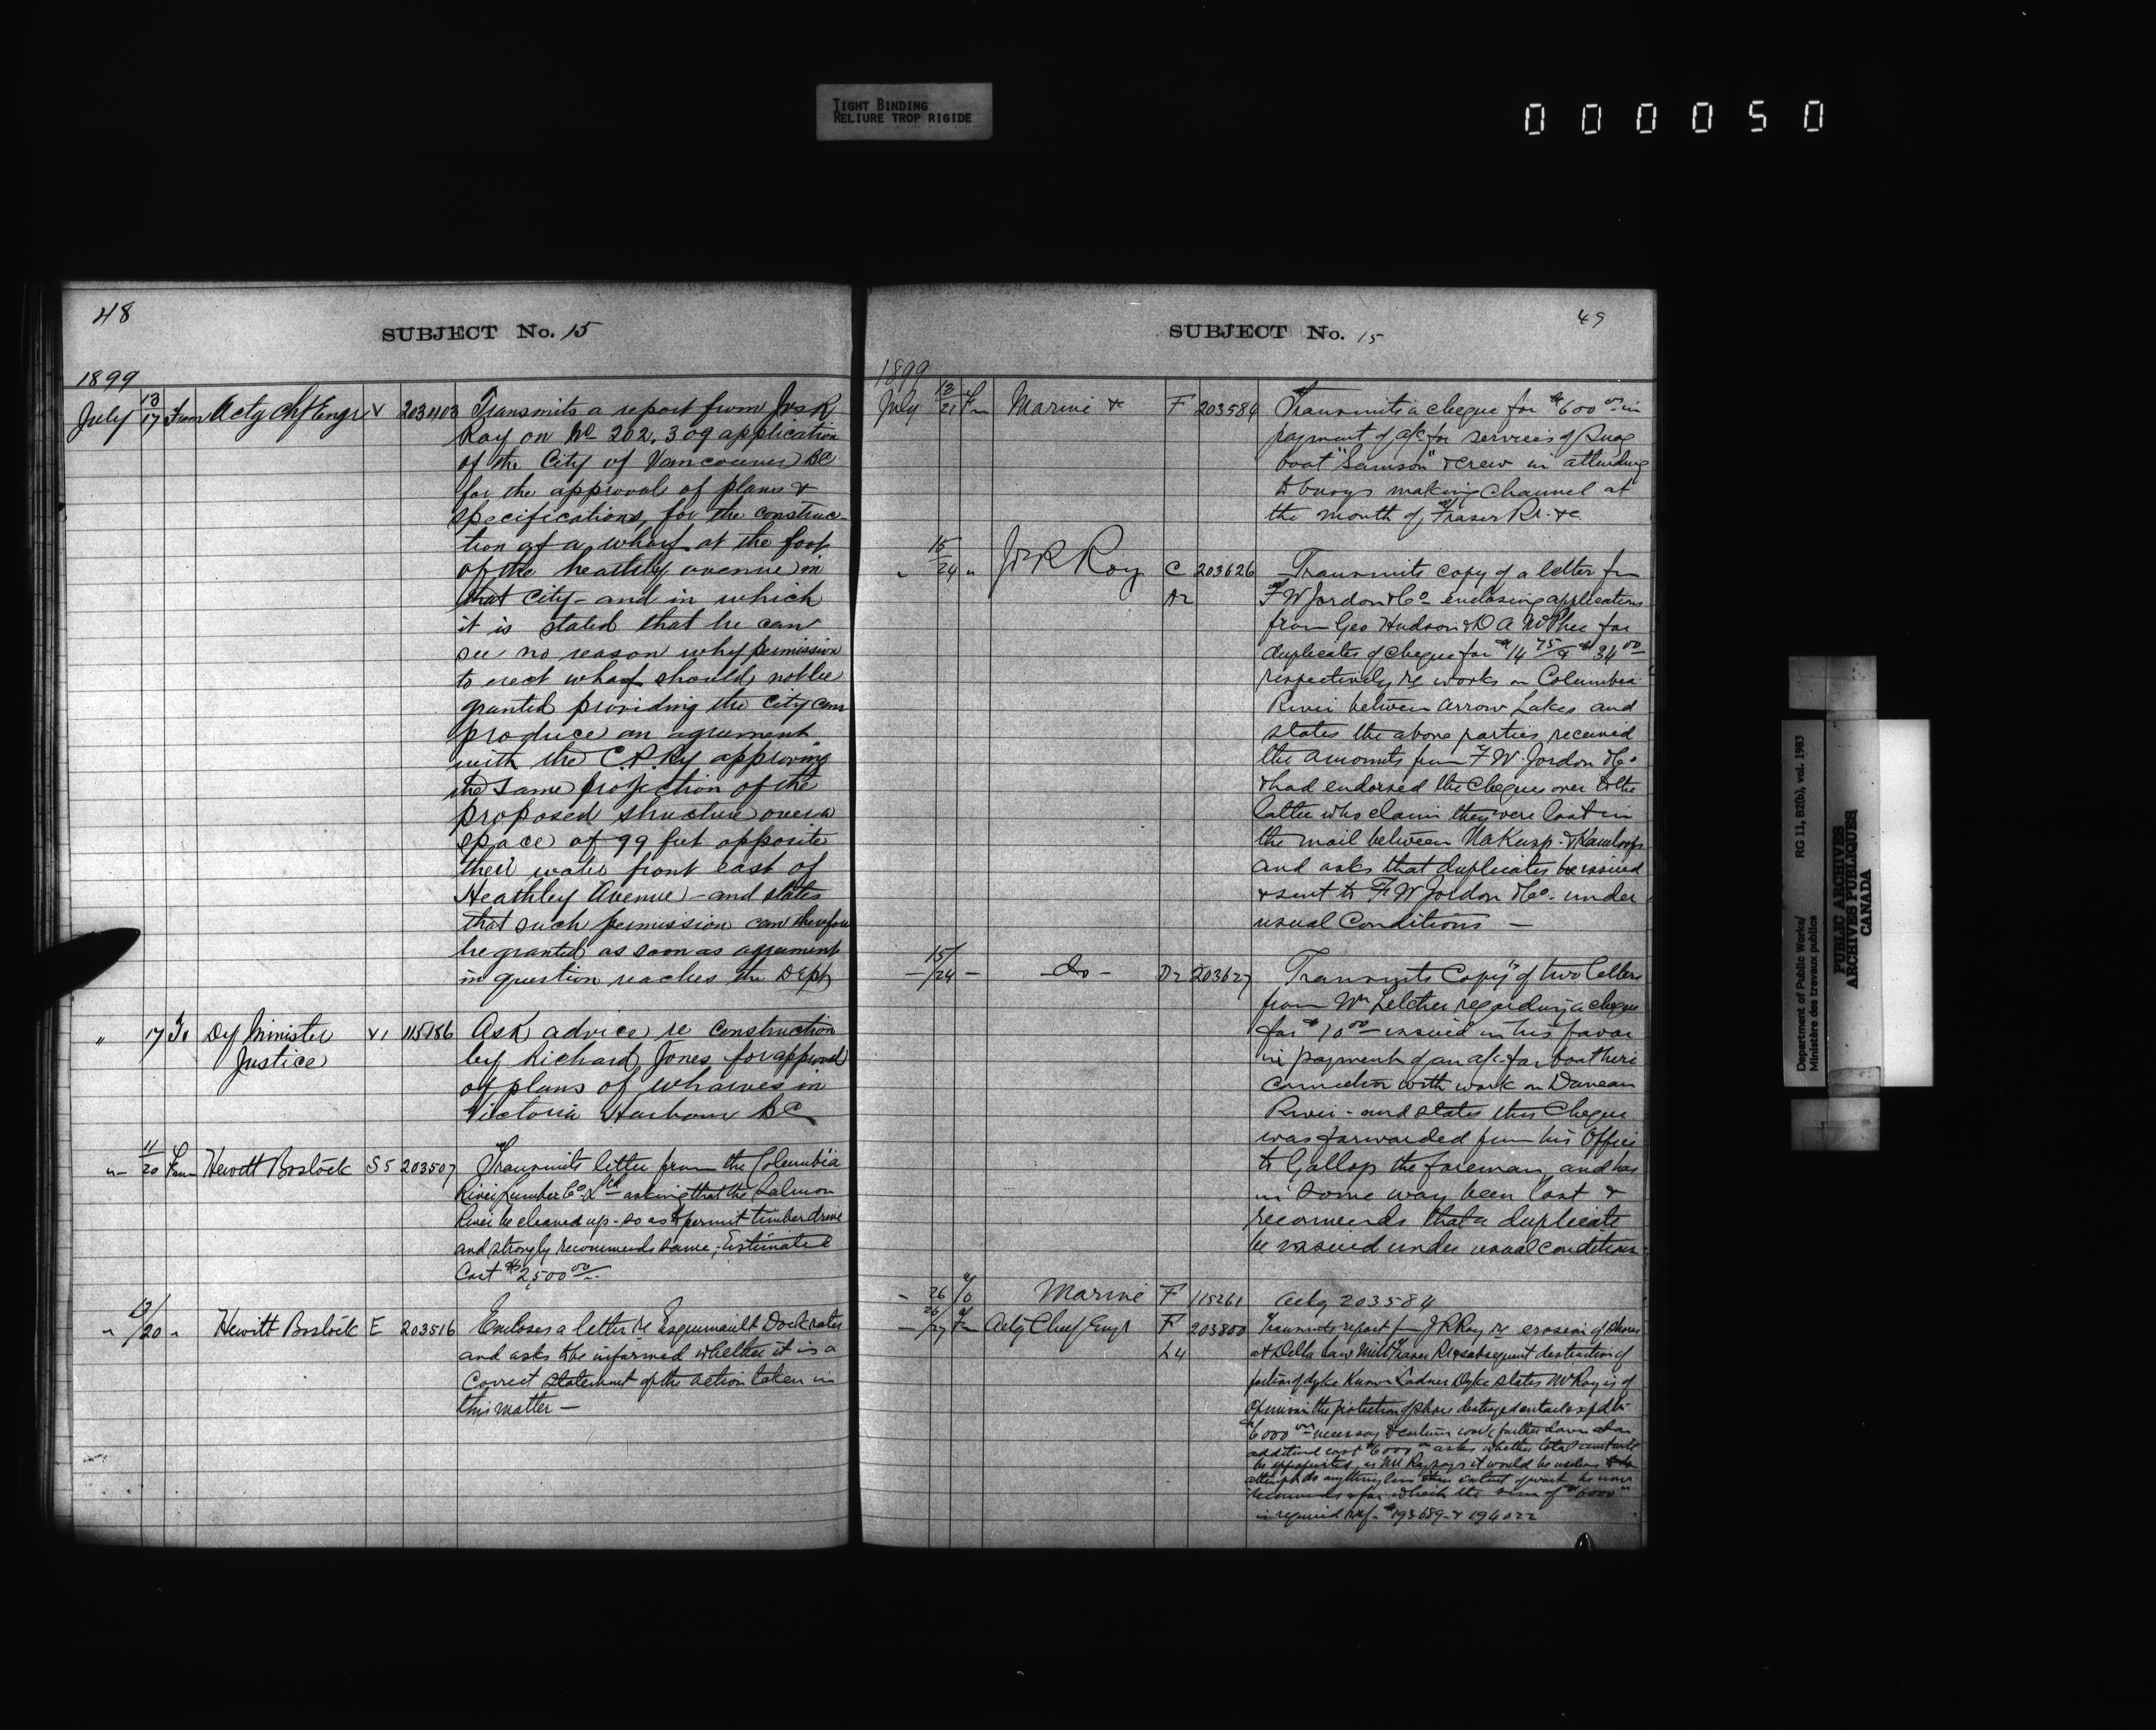 TIGHT BINDING
RELIURE TROP RIGIDE
000050
48
SUBJECT No. 15
1899
July 13/17 From Actg Chf Engr V 203403 Transmits a report from Jos R
Roy on No 202.309 application
of the City of Vancouver BC
for the approval of plans &
specifications, for the construc-
tion of a wharf at the foot
of the heathly avenue in
that City - and in which
it is stated that he can
see no reason why permission
to erect wharf should not be
granted providing the City can
produce an agreement
with the C.P.Ry approving
the same projection of the
proposed structure over a
space of 99 feet opposite
their water front east of
Heathley Avenue - and states
that such permission can therefore
be granted as soon as agreement
in question reaches the Dept
" 17 To Dy Minister V1 115186 Ask advice re construction
Justice by Richard Jones for approval
of plans of wharves in
Victoria Harbour BC
" 11/20 From Hewitt Bostock S5 203507 Transmits letter from the Columbia
River Lumber Co. Ltd asking that the Salmon
River be cleaned up - so as to permit timber drive
and strongly recommends same, Estimated
Cost $2,500 00
" 13/20 " Hewitt Bostock E 203516 Encloses a letter re Esquimault Dock rates
and asks to be informed whether it is a
Correct statement of the action taken in
this matter —
49
SUBJECT No. 15
1899
July 13/21 Fm Marine & F 203584 Transmits a cheque for $600 00 in
payment of a/c for services of Snag
boat "Samson" & crew in attending
to buoys making Channel at
the mouth of Fraser Rr. &c.
" 15/24 " J R Roy C 203626 Transmits copy of a letter fm
A2 F W Jordon & Co - enclosing applications
from Geo Hudson & D A McPhee for
duplicates of cheque for $14 75 & $34 00
respectively re works on Columbia
River between Arrow Lakes and
states the above parties received
the amounts from F W. Jordon & Co
& had endorsed the Cheques over to the
latter who claim they were lost in
the mail between Nakusp & Kamloops
and asks that duplicates be issued
& sent to F W Jordon & Co - under
usual Conditions —
— 15/24 — — do — D2 203627 Transmits Copy of two letters
from Wm regarding a cheque
for $10 00 — issued in his favor
in payment of an a/c for boat hire
Connection with work on Duncan
River - and states this Cheque
was forwarded from his Office
to Gallop the foreman, and has
in some way been lost &
recomends that a duplicate
be issued under usual conditions
- 26 To Marine F 115261 Ackg 203584
— 26/27 Fm Actg Chief Engr F 203800 Transmits report fm J R Roy re erosion of shores
L4 at Delta Saw Mill Fraser Rr & subsequent destruction of
portion of dyke Known Ladner Dyke states Mr Roy is of
Opinion the protection of shore destroyed entails expdtr
$6000 00 necessary & certain work further down at an
additional cost $6000 asks whether total amount will
be appropriated, as Mr Roy says it would be useless to
attempt do anything less than extent of work he now
recommends & for which the sum of $6000 00
is required ref - #193689 - & 194022
Department of Public Works/
Ministère des travaux publics
RG 11, B2(b), vol. 1983
PUBLIC ARCHIVES
ARCHIVES PUBLIQUES
CANADA